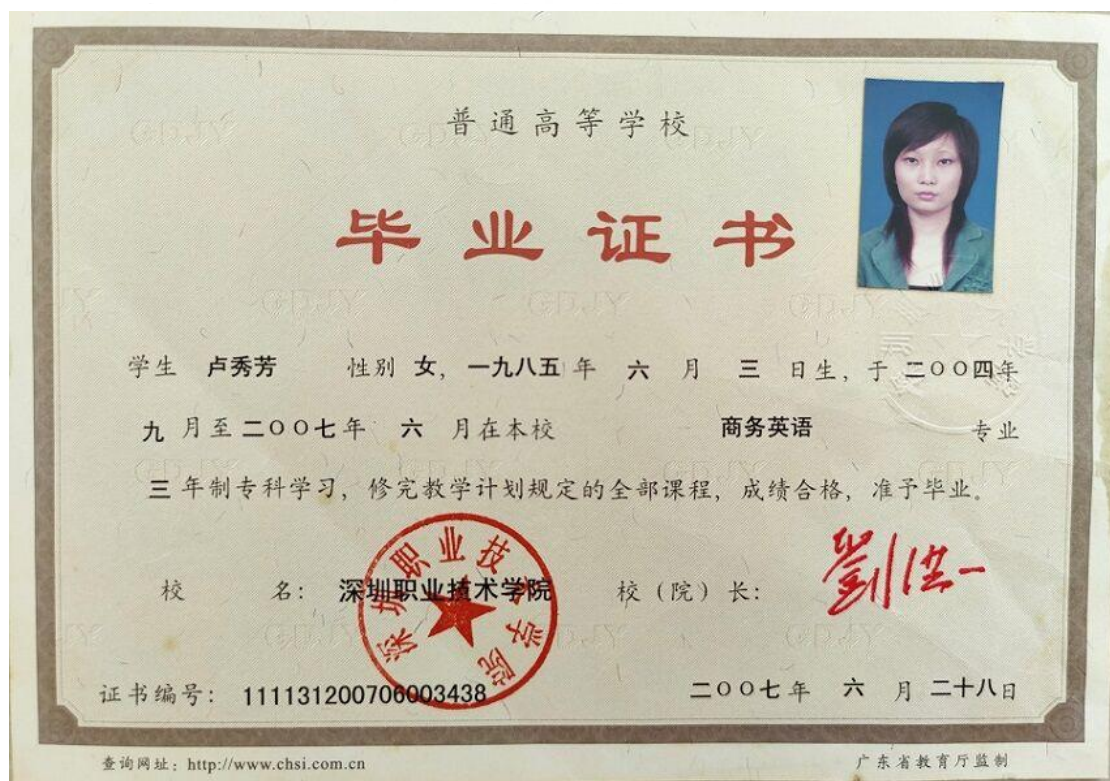 普通高等学校
毕业证书
学生 卢秀芳 性别 女, 一九八五年 六 月 三 日生, 于 二〇〇四年
九 月至 二〇〇七年 六 月在本校 商务英语 专业
三 年制专科学习, 修完教学计划规定的全部课程, 成绩合格, 准予毕业。
校 名: 深圳职业技术学院 校(院)长: 劉洪一
深圳职业技术学院
证书编号: 111131200706003438 二〇〇七年 六 月 二十八日
查询网址: http://www.chsi.com.cn 广东省教育厅监制
GDJY